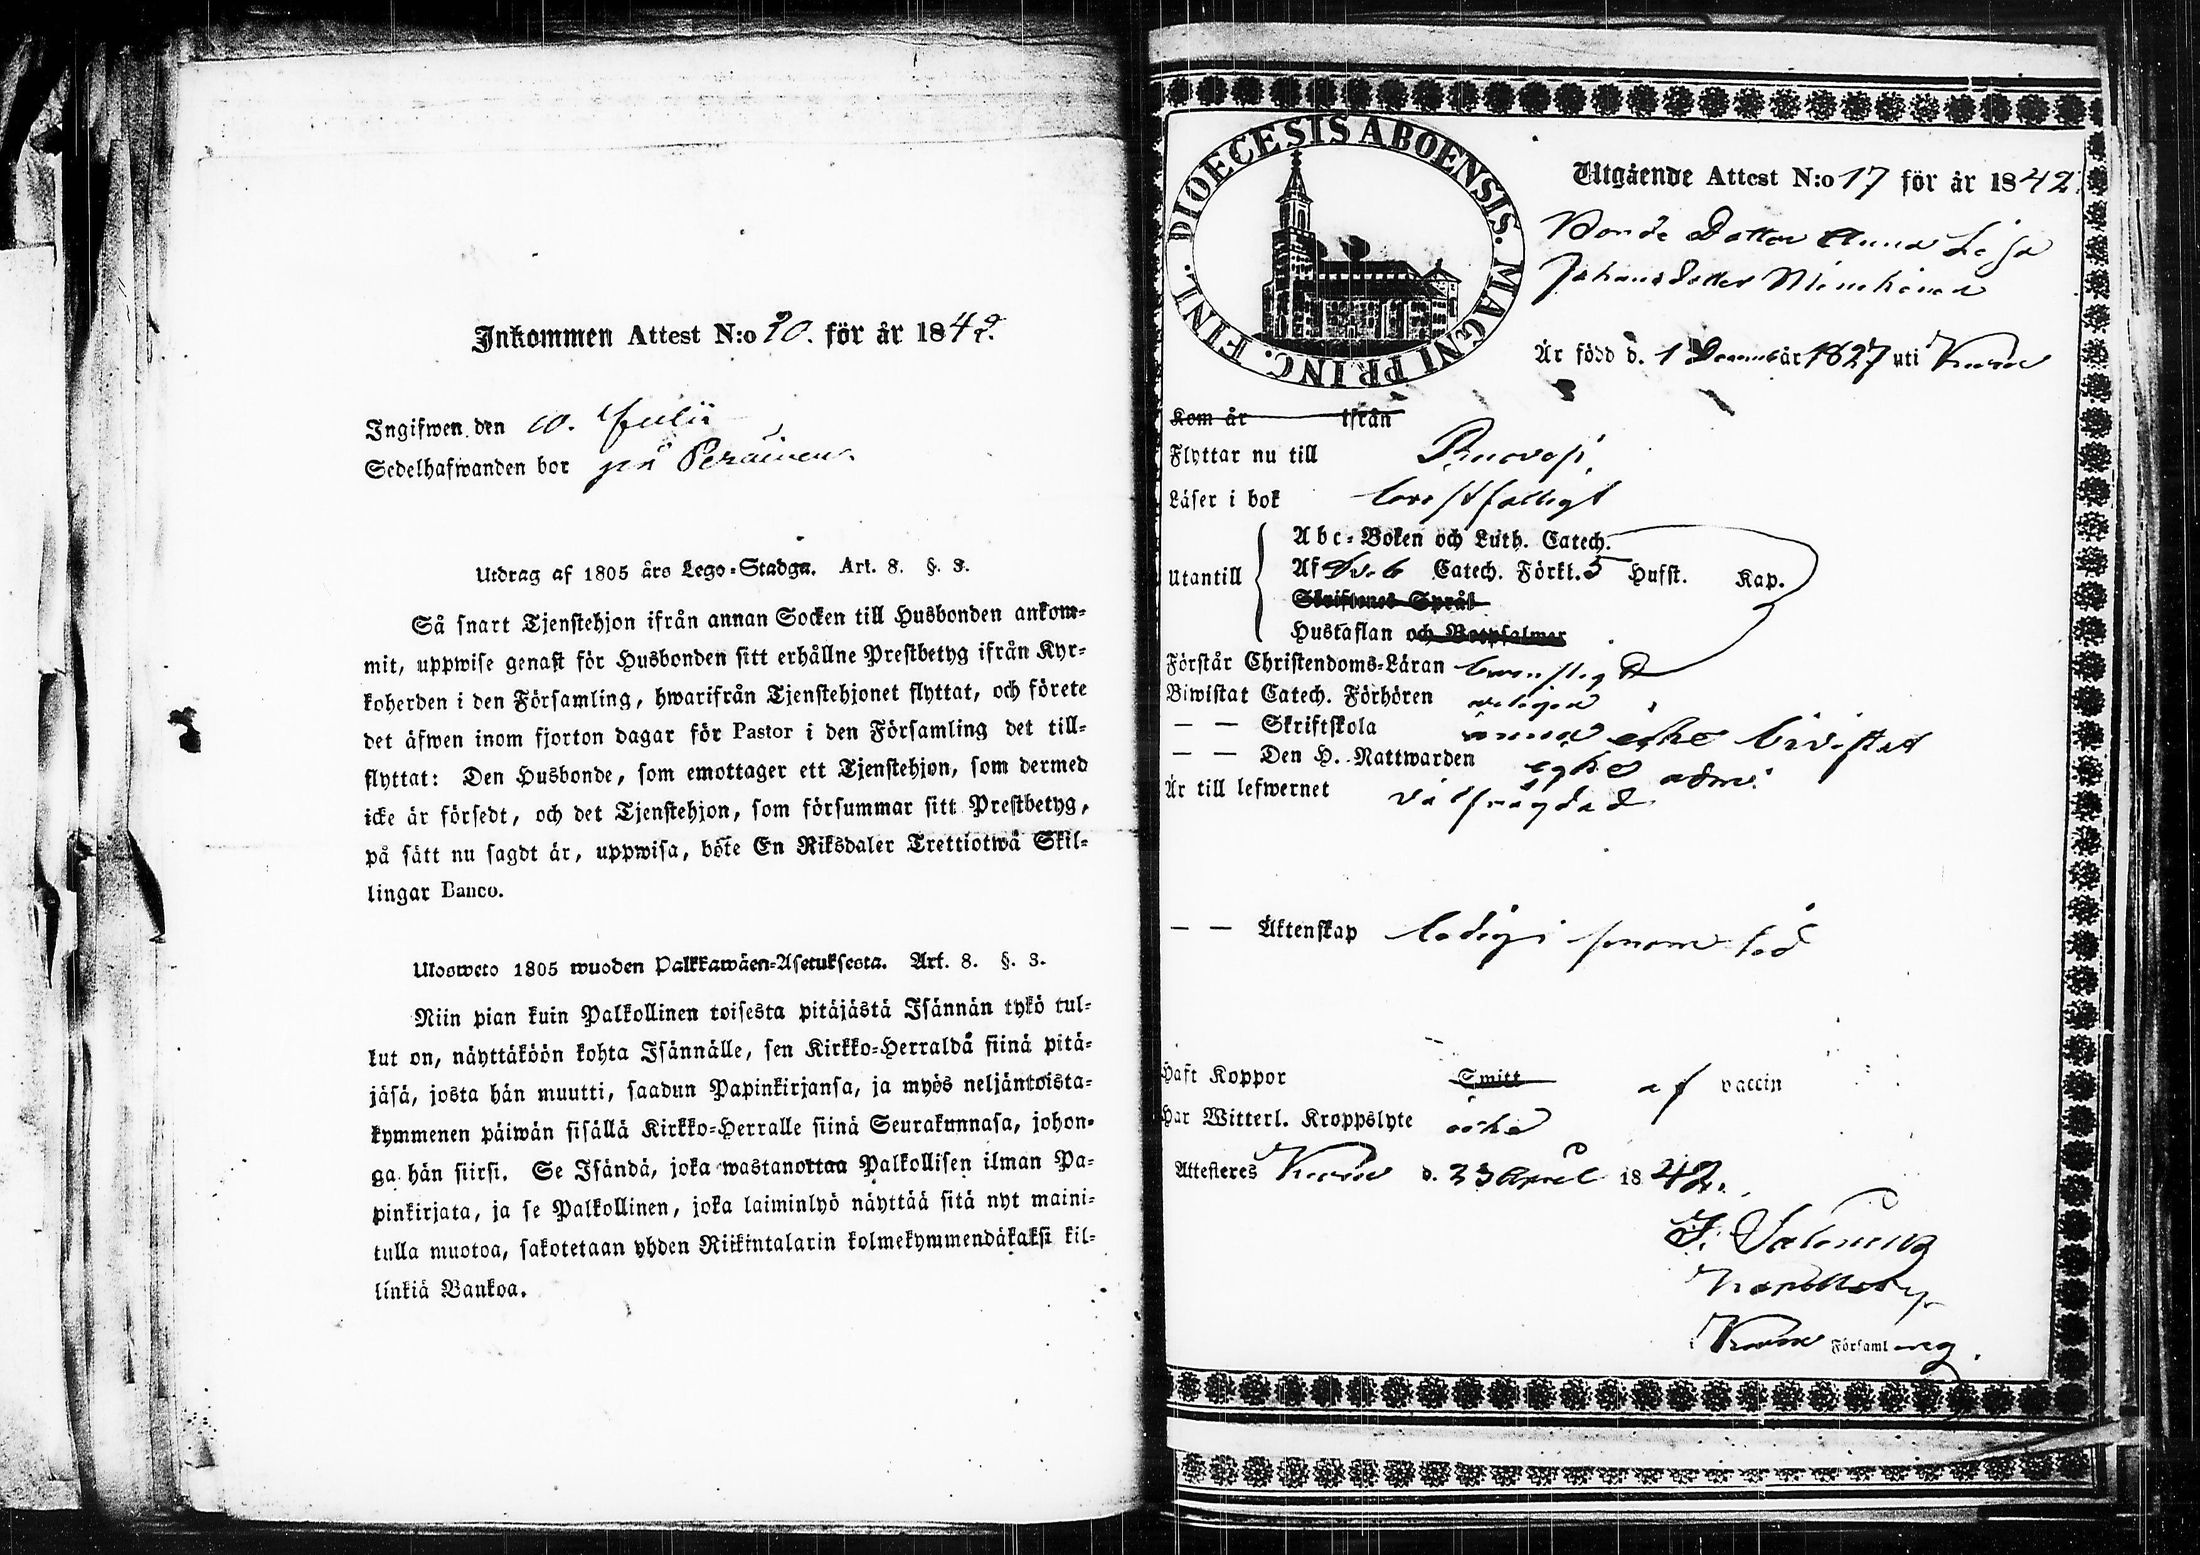 Inkommen Attest N:o 20. för år 1842.
Ingifwen den 10. Julii
Sedelhafwanden bor på Peräinen.
Utdrag af 1805 års Lego-Stadga. Art. 8. §. 3.
Så snart Tjenstehjon ifrån annan Socken till Husbonden ankom-
mit, uppwise genast för Husbonden sitt erhållne Prestbetyg ifrån Kyr-
koherden i den Församling, hwarifrån Tjenstehjonet flyttat, och förete
det äfwen inom fjorton dagar för Pastor i den Församling det till-
flyttat: Den Husbonde, som emottager ett Tjenstehjon, som dermed
icke är försedt, och det Tjenstehjon, som försummar sitt Prestbetyg,
på sätt nu sagdt är, uppwisa, böte En Riksdaler Trettiotwå Skil-
lingar Banco.
Ulosweto 1805 wuoden Palkkawäen-Asetuksesta. Art. 8. §. 3.
Niin pian kuin Palkollinen toisesta pitäjästä Isännän tykö tul-
lut on, näyttäköön kohta Isännälle, sen Kirkko-Herralda siinä pitä-
jäsä, josta hän muutti, saadun Papinkirjansa, ja myös neljäntoista-
kymmenen päiwän sisällä Kirkko-Herralle siinä Seurakunnasa, johon-
ga hän siirsi. Se Isändä, joka wastanottaa Palkollisen ilman Pa-
pinkirjata, ja se Palkollinen, joka laiminlyö näyttää sitä nyt maini-
tulla muotoa, sakotetaan yhden Riikintalarin kolmekymmendäkaksi kil-
linkiä Bankoa.
DIOECESIS ABOENSIS. MAGNI PRINC. FINL.
Utgående Attest N:o 17 för år 1842.
Bonde Dotter Anna Lisa
Johansdotter
Är född d. 1 Decemb år 1827 uti
Kom år ifrån
Flyttar nu till Ruovesi
Läser i bok
Abc-Boken och Luth. Catech.
Utantill Af Catech. Förkl. 5 Hufst. Kap.
Skriftenes Språk
Hustaflan och Botpsalmer
Förstår Christendoms-Läran
Biwistat Catech. Förhören
— — Skriftskola ännu icke bivistat
— — Den H. Nattwarden ej adm.
Är till lefwernet välfrägdad
— — Äktenskap ledig
Haft Koppor Smitt af vaccin
Har Witterl. Kroppslyte icke
Attesteres d. 23 April 1842.
Församling.